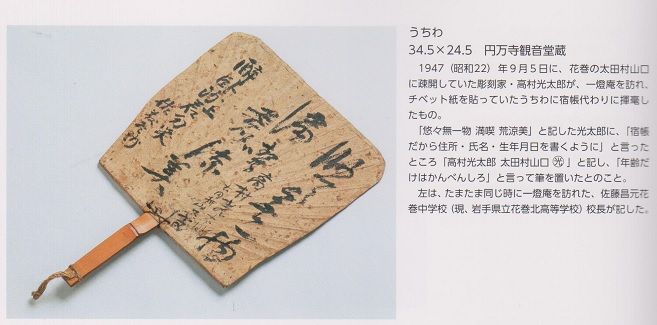 うちわ
34.5×24.5　円万寺観音堂蔵
　1947（昭和22）年９月５日に、花巻の太田村山口
に疎開していた彫刻家・高村光太郎が、一燈庵を訪れ、
チベット紙を貼っていたうちわに宿帳代わりに揮毫し
たもの。
　「悠々無一物 満喫 荒涼美」と記した光太郎に、「宿帳
だから住所・氏名・生年月日を書くように」と言った
ところ「高村光太郎 太田村山口 ㊗」と記し、「年齢だ
けはかんべんしろ」と言って筆を置いたとのこと。
　左は、たまたま同じ時に一燈庵を訪れた、佐藤昌元花
巻中学校（現、岩手県立花巻北高等学校）校長が記した。
悠々無一物
満喫
荒涼美
高村光太郎